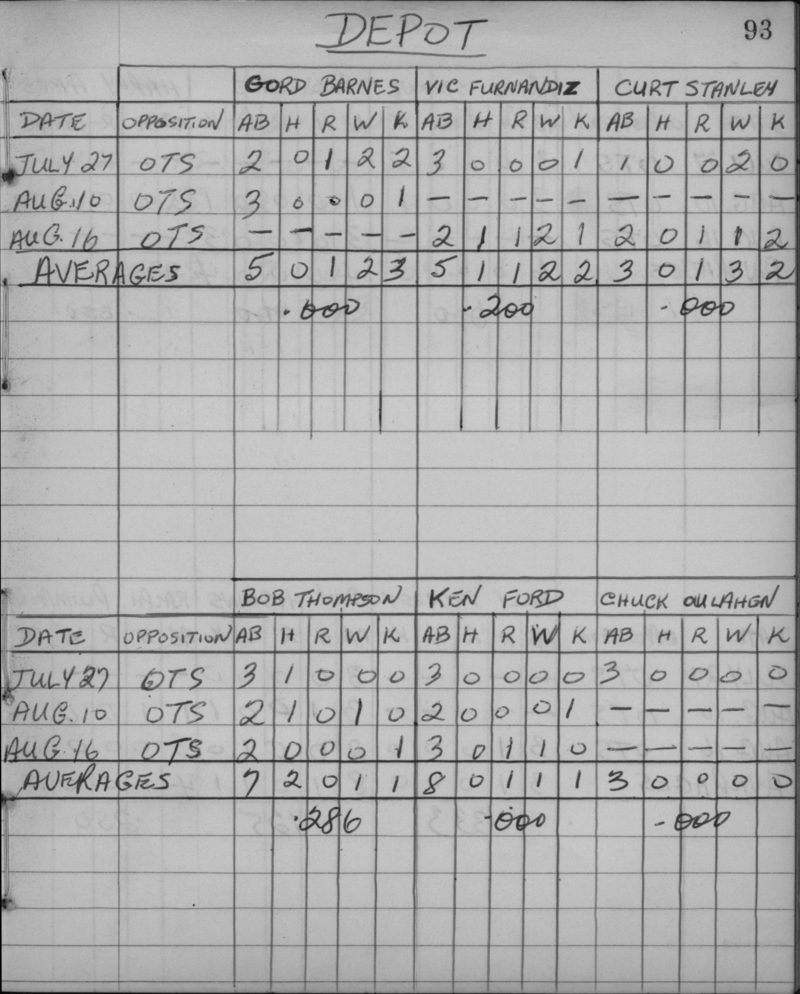 DEPOT 93
GORD BARNES VIC FURNANDIZ CURT STANLEY
DATE OPPOSITION AB H R W K AB H R W K AB H R W K
JULY 27 OTS 2 0 1 2 2 3 0 0 0 1 1 0 0 2 0
AUG. 10 OTS 3 0 0 0 1 — — — — — — — — — —
AUG. 16 OTS — — — — — 2 1 1 2 1 2 0 1 1 2
AVERAGES 5 0 1 2 3 5 1 1 2 2 3 0 1 3 2
.000 .200 .000
BOB THOMPSON KEN FORD CHUCK OULAHEN
DATE OPPOSITION AB H R W K AB H R W K AB H R W K
JULY 27 OTS 3 1 0 0 0 3 0 0 0 0 3 0 0 0 0
AUG. 10 OTS 2 1 0 1 0 2 0 0 0 1 — — — — —
AUG. 16 OTS 2 0 0 0 1 3 0 1 1 0 — — — — —
AVERAGES 7 2 0 1 1 8 0 1 1 1 3 0 0 0 0
.286 .000 .000